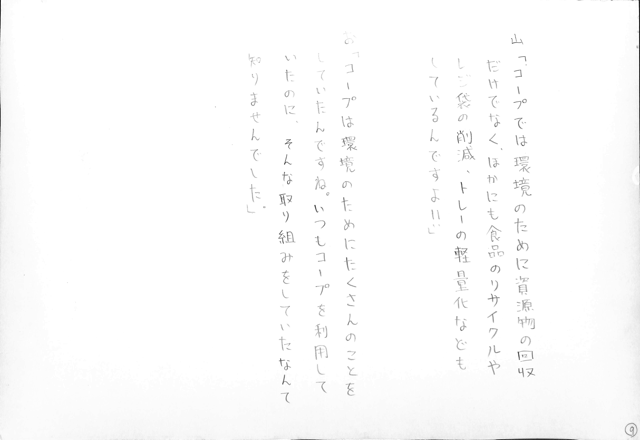 山「コープでは環境のために資源物の回収
だけでなく、ほかにも食品のリサイクルや
レジ袋の削減、トレーの軽量化なども
しているんですよ!!」
お「コープは環境のためにたくさんのことを
していたんですね。いつもコープを利用して
いたのに、そんな取り組みをしていたなんて
知りませんでした。」
9